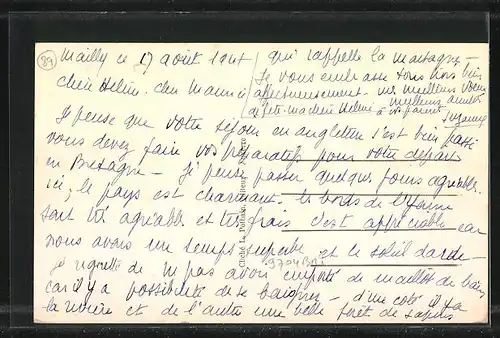 89
Mailly ce 17 août
chère Hélène, cher Maurice
Je pense que votre séjour en angleterre s'est bien passé
vous devez faire vos préparatifs pour votre départ
en Bretagne – je pense passer quelques jours agréables
ici, le pays est charmant. les bords de l'Yonne
sont très agréables et très frais c'est appréciable car
nous avons un temps superbe et le soleil darde –
Je regrette de n pas avoir emporté de maillot de bain
car il y a possibilité de se baigner – d'un coté il y a
la rivière et de l'autre une belle forêt de sapins
qui rappelle la montagne –
Je vous embrasse tous trois bien
affectueusement – mes meilleurs voeux
de fête ma chère Hélène
meilleures amitiés
à vos parents.
Cliché L.
9704BRI